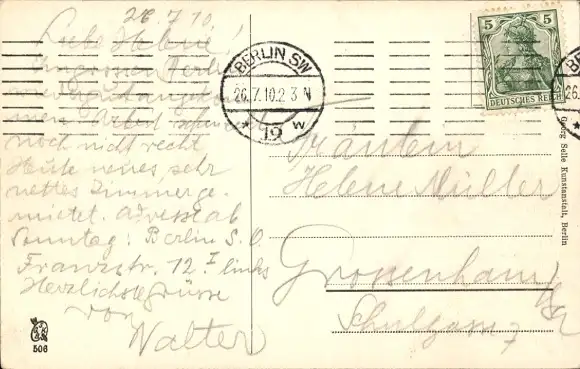 26.7.10
Liebe Helene!
Im grossen Berlin
men. Arbeit schmeckt
noch nicht recht
Heute neues, sehr
nettes Zimmer ge-
mietet. Adresse ab
Sonntag: Berlin S.O.
Franzstr. 12 I links
Herzlichste Grüsse
von
Walter
506
BERLIN SW
26.7.10.2-3 N
* 19 w
5 5
DEUTSCHES REICH
BE
26.
Fräulein
Helene Müller
Grossenhain
Schulgasse 7
Georg Salle Kunstanstalt, Berlin